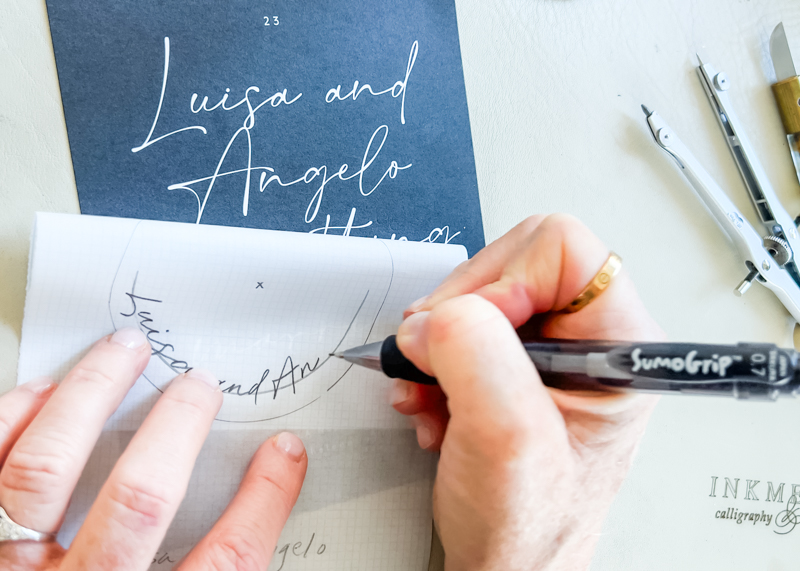 23
Luisa and
Angelo
x
Luisa and An
SUMOGRIP™ 0.7
INKME
calligraphy &